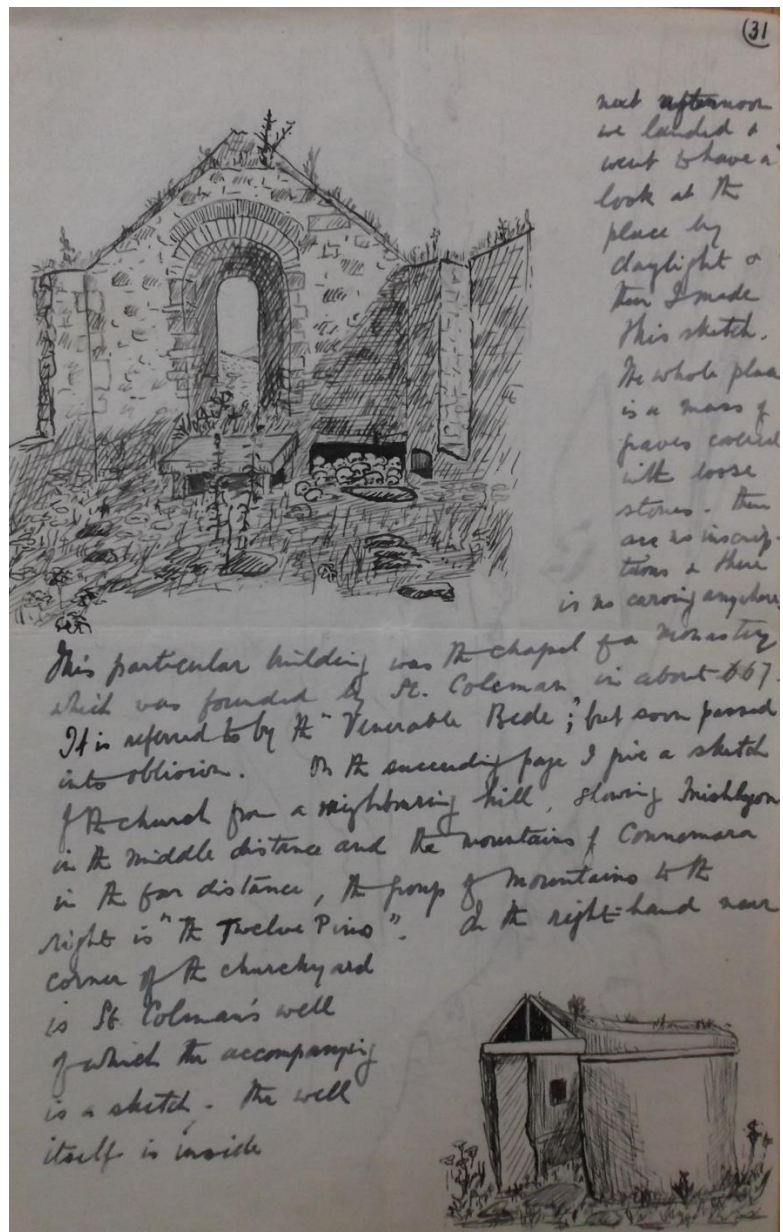 (31
next afternoon
we landed &
went to have a
look at the
place by
daylight &
then I made
this sketch.
The whole place
is a mass of
graves covered
with loose
stones. There
are no inscrip-
tions & there
is no carving anywhere
This particular building was the chapel of a monastery
which was founded by St. Coleman in about 667.
It is referred to by the "Venerable Bede"; but soon passed
into oblivion. On the succeeding page I give a sketch
of the church from a neighbouring hill, showing Inishlyon
in the middle distance and the mountains of Connemara
in the far distance, the group of mountains to the
right is "the Twelve Pins". In the right-hand near
corner of the churchyard
is St. Colman's well
of which the accompanying
is a sketch. The well
itself is inside